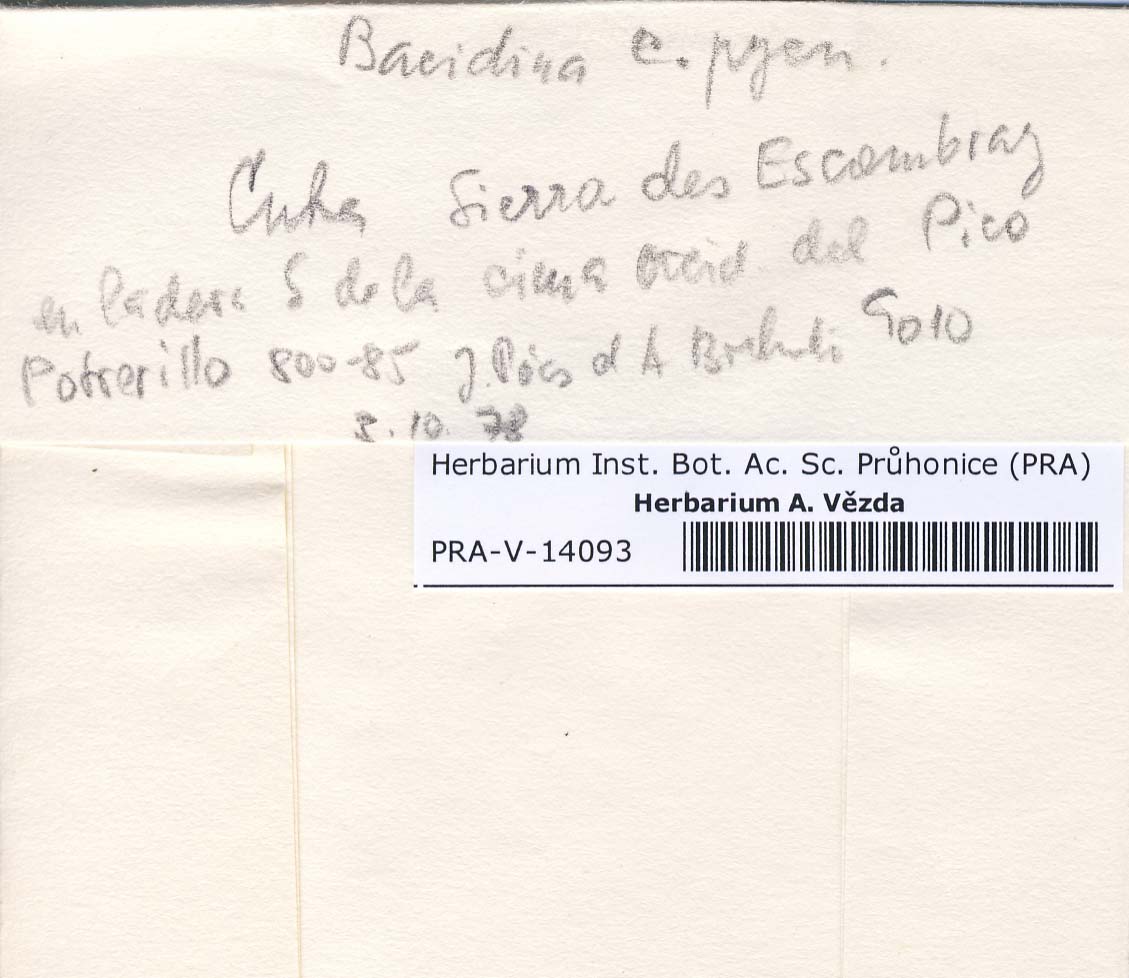 Bacidina c. pycn.
Cuba Sierra des Escambray
en ladera S de la cima occid. del Pico
Potrerillo 800-85 J. Pócs d A Borhidi 9010
3.10.78
Herbarium Inst. Bot. Ac. Sc. Průhonice (PRA)
Herbarium A. Vězda
PRA-V-14093